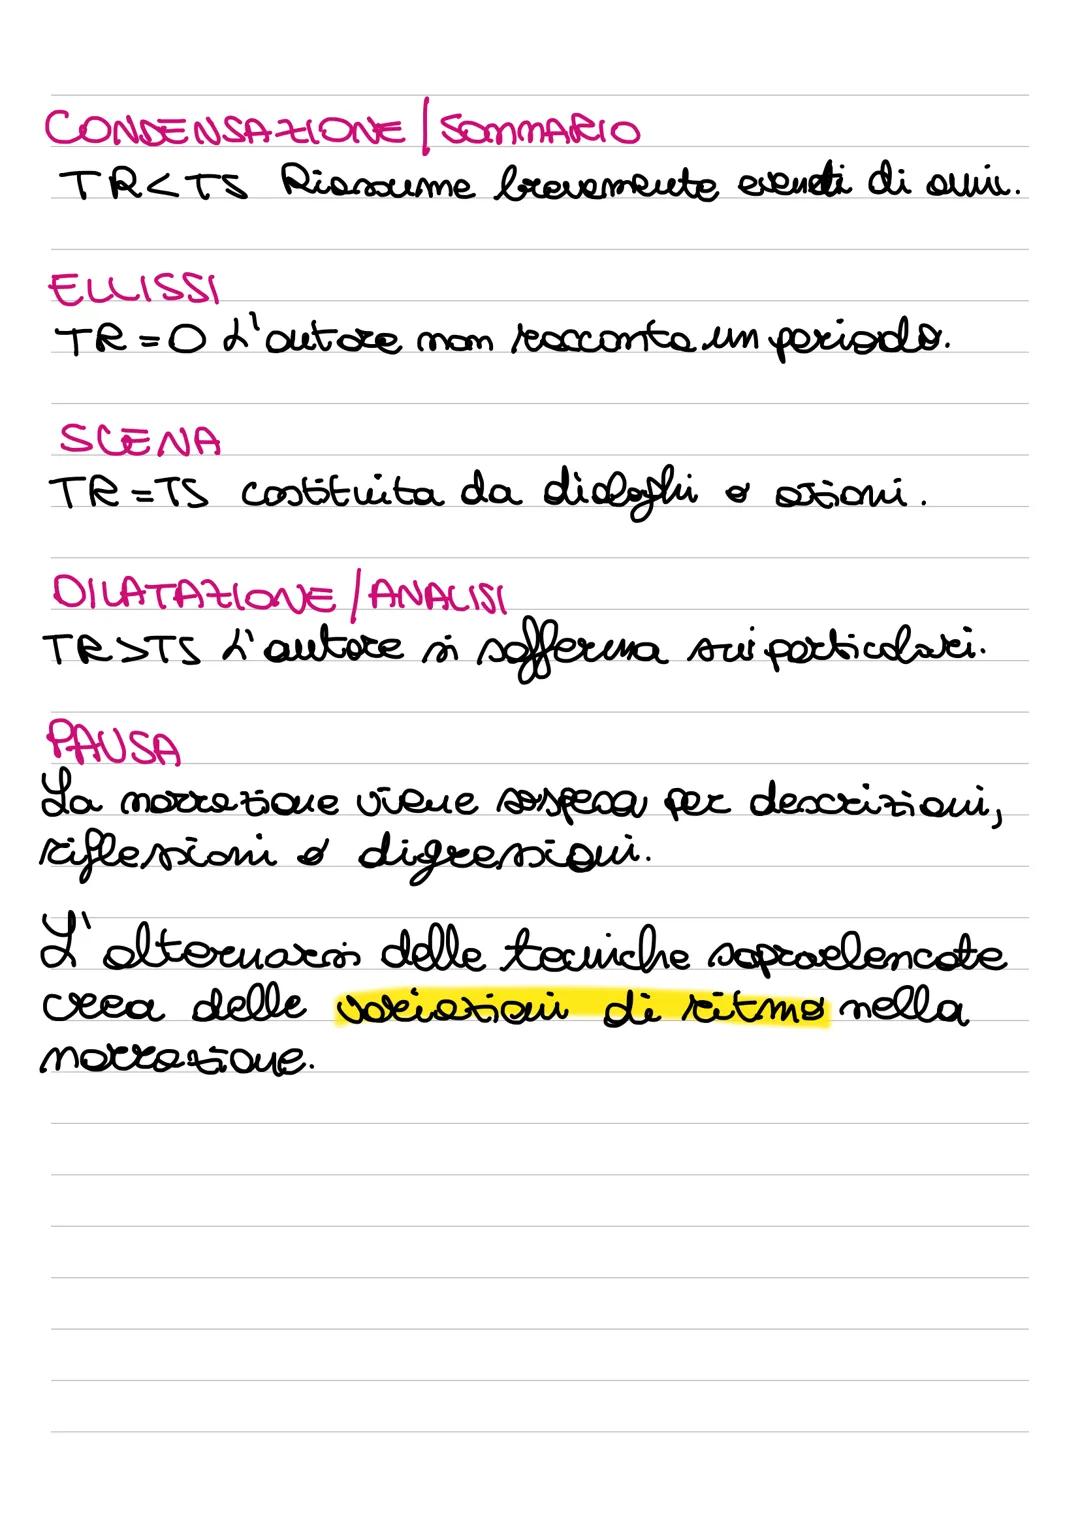 CONDENSAZIONE/SOMMARIO
TR<TS Riassume brevemente eventi di anni.
ELLISSI
TR=0 L'autore non racconta un periodo.
SCENA
TR=TS costituita da dialoghi o azioni.
DILATAZIONE/ANALISI
TR>TS L'autore si sofferma sui particolari.
PAUSA
La narrazione viene sospesa per descrizioni,
riflessioni o digressioni.
L'alternarsi delle tecniche sopraelencate
crea delle variazioni di ritmo nella
narrazione.